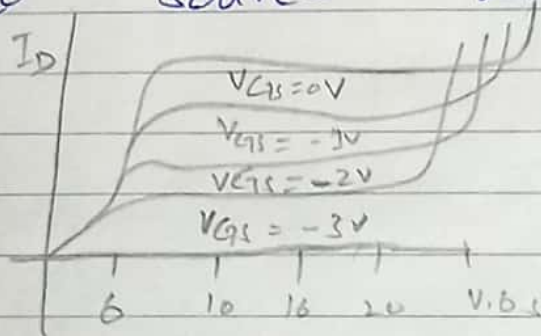 I_D
V_GS = 0V
V_GS = -1V
V_GS = -2V
V_GS = -3V
6 10 16 20